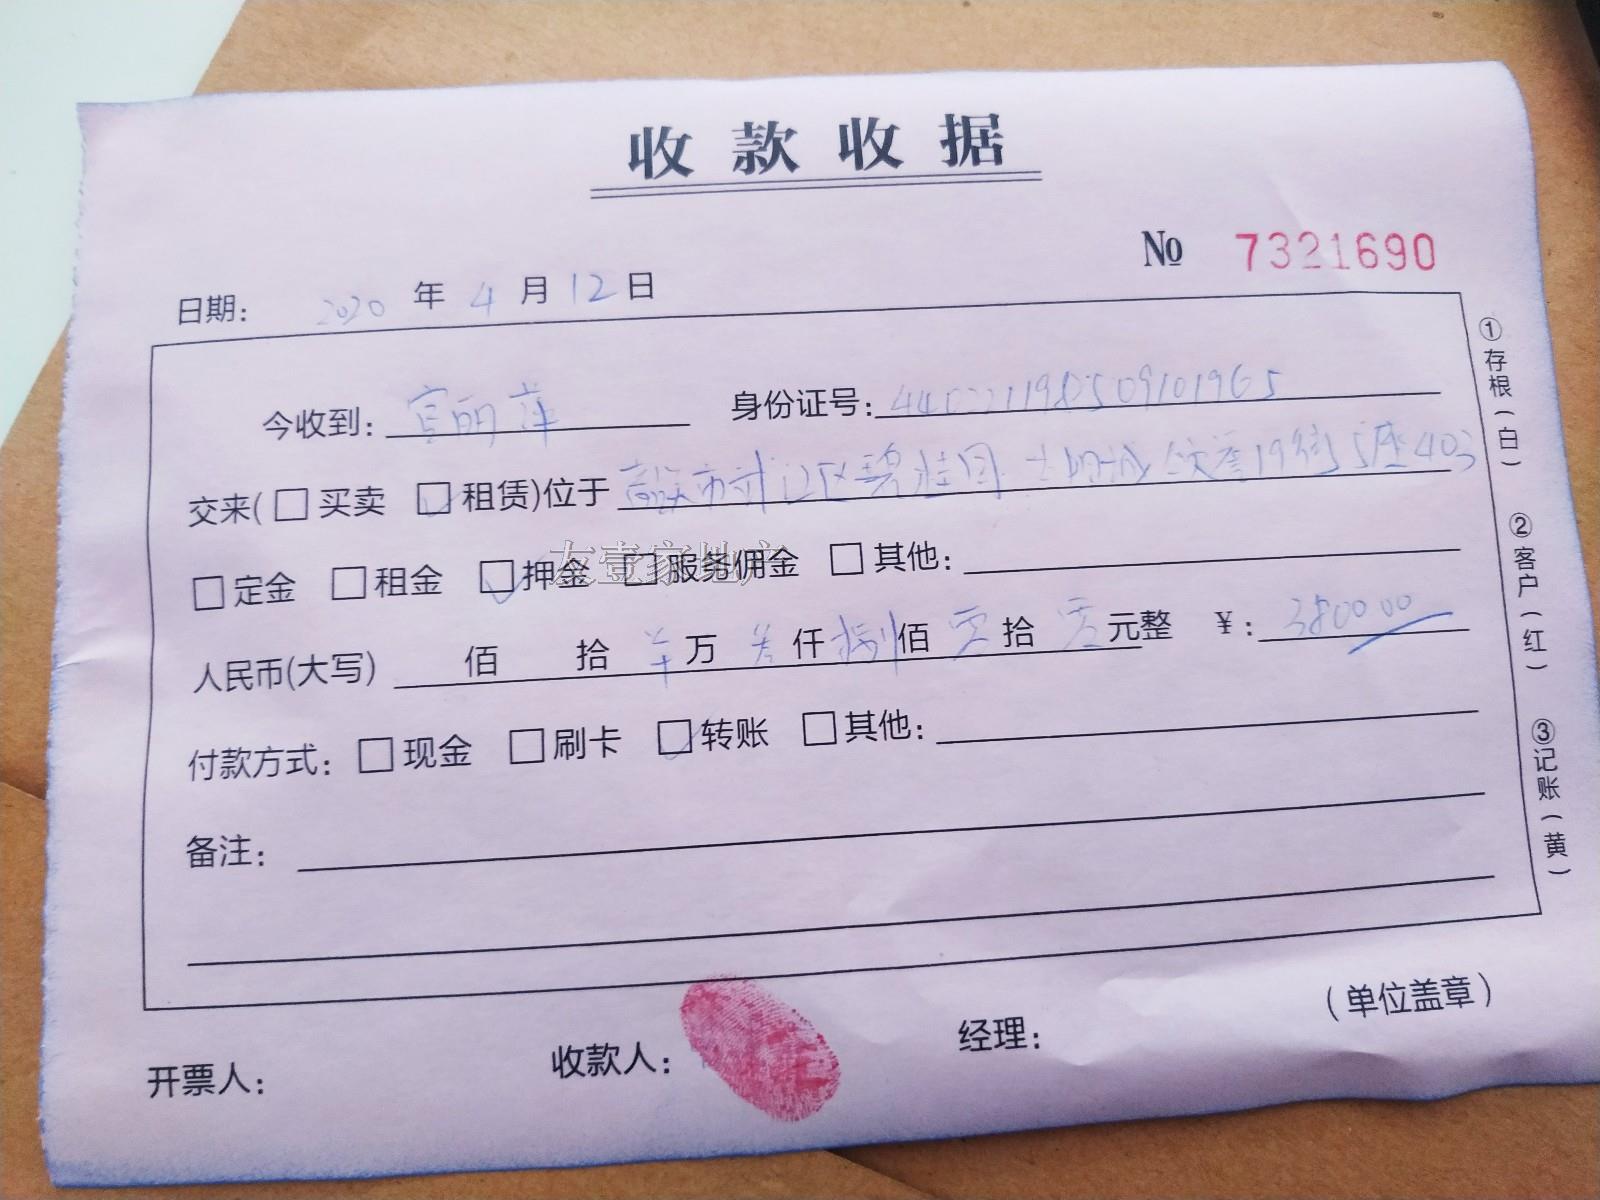 收款收据
№ 7321690
日期： 2020 年 4 月 12 日
今收到： 官丽萍 身份证号：
交来(□ 买卖 ☑ 租赁)位于 区碧桂园 19街5座403
□ 定金 □ 租金 ☑ 押金 □ 服务佣金 □ 其他：
友壹家地产
人民币(大写) 佰 拾 万 叁 仟 捌 佰 零 拾 零 元整 ￥： 3800.00
付款方式： □ 现金 □ 刷卡 ☑ 转账 □ 其他：
备注：
开票人： 收款人： 经理： （单位盖章）
①存根（白）
②客户（红）
③记账（黄）